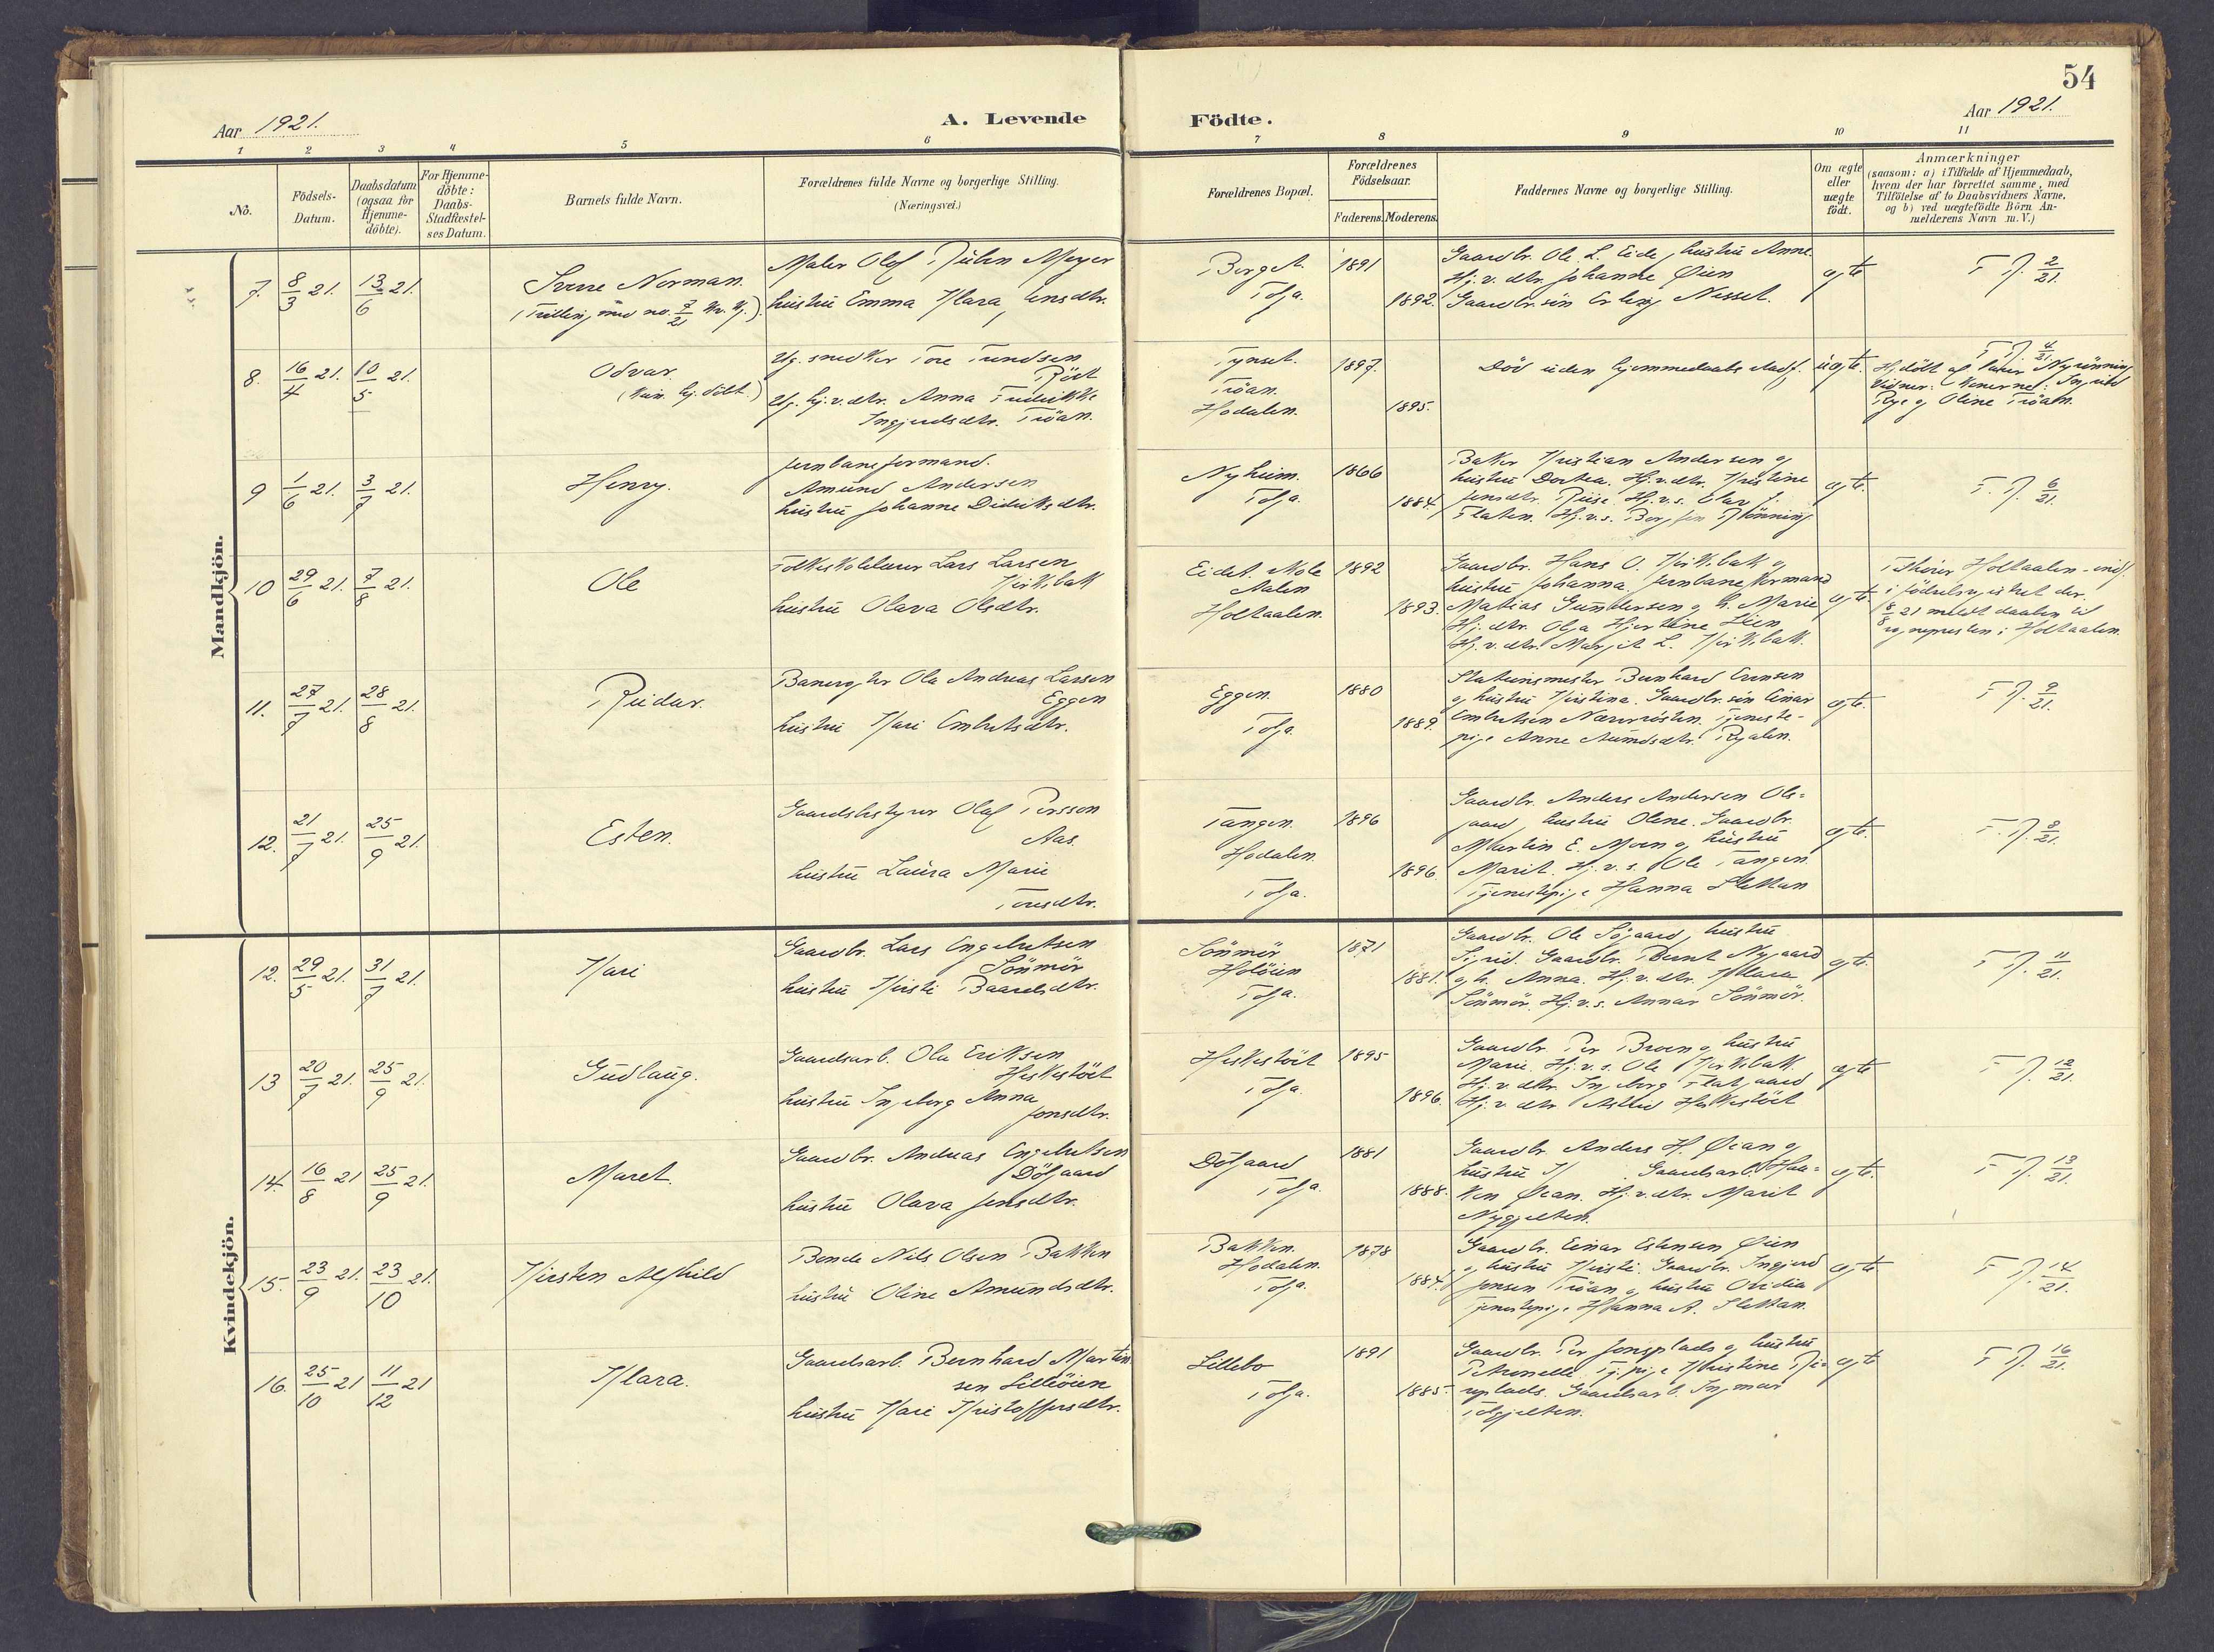 54
Aar 1921.
A. Levende
Födte.
Aar 1921.
1 2 3 4 5 6 7 8 9 10 11
No.
Födsels-Datum.
Daabsdatum (ogsaa for Hjemme-döbte).
For Hjemme-döbte: Daabs-Stadfæstel-ses Datum.
Barnets fulde Navn.
Forældrenes fulde Navne og borgerlige Stilling.
(Næringsvei.)
Forældrenes Bopæl.
Forældrenes Födselsaar.
Faderens. Moderens.
Faddernes Navne og borgerlige Stilling.
Om ægte eller uægte födt.
Anmærkninger
(saasom: a) i Tilfælde af Hjemmedaab,
hvem der har forrettet samme, med
Tilföielse af to Daabsvidners Navne,
og b) ved uægtefödte Börn An-
melderens Navn m.V.)
Mandkjön.
7. 8/3 21. 13/6 21.
Sverre Norman.
(Tvilling med no. 7/21 Kv. Kj.)
Maler Olof Ruben Meyer
hustru Emma Klara Jensdtr.
Berget.
Tolga.
1891
1892.
Gaardbr. Ole L. Eide, hustru Anne
Hj.v. dtr. Johanne Øien
Gaardbr. sön Erling Nesset.
egte
F. R. 2/21.
8. 16/4 21. 10/5 21.
Odvar.
(Kun hj. döbt.)
Ug. snedker Tore Trondsen
Röst
Ug. hj.v.dtr. Anna Fredrikke
Ingjerdsdtr. Tröan.
Tynset.
Tröan.
Hodalen.
1897.
1895.
Död uden hjemmedaabs stadf.
uegte.
F. R. 4/21.
Hj.döbt af Nyrönning
Vidner: Konerne: Ingrid
Rye og Oline Tröan.
9 1/6 21. 3/7 21.
Henry.
Jernbaneformand.
Amund Andersen
hustru Johanne Didriksdtr.
Nyheim.
Tolga
1866
1884.
Baker Kristian Andersen og
hustru Dortea. Hj.v.dtr. Kristine
Jensdtr. Riise. Hj.v.s. Olav J.
Flaten. Hj.v.s. Rönning
egte.
F. R. 6/21.
10 29/6 21. 7/8 21.
Ole
Folkeskolelærer Lars Larsen
Kirkbak
hustru Olava Olsdtr.
Eidet. Nole
Aalen
Holtaalen.
1892
1893.
Gaardbr. Hans O. Kirkbak og
hustru Johanna, Jernbaneformand
Matias Gundersen og h. Marie
Hj. dtr. Olga Hjertine Lien
Hj.v. dtr. Margit L. Kirkbak.
egte
Tilhörer Holtaalen - indf.
i födselsregistret der.
8/8 21 meldt daaben til
sognepresten i Holtaalen.
11. 27/7 21. 28/8 21.
Reidar.
Banevogter Ola Andreas Larsen
Eggen
hustru Kari Embretsdtr.
Eggen.
Tolga.
1880
1889.
Stationsmester Bernhard Evensen
og hustru Kristina. Gaardbr. sön Einar
Embretsen Nærörösten. Tjeneste-
pige Anne Aumdsdtr. Ryalen.
egte.
F. R. 9/21.
12. 21/7 21. 25/9 21.
Esten.
Gaardsbestyrer Olaf Persson
Aas.
hustru Laura Marie
Toresdtr.
Tangen.
Hodalen.
Tolga.
1896
1896.
Gaardbr. Anders Andersen Ols-
gaard, hustru Olene. Gaardbr.
Martin E. Moen og hustru
Marit. Hj.v.s. Ole Tangen
Tjenestepige Hanna Slettan
egte.
F. R. 8/21.
Kvindekjön.
12. 29/5 21. 31/7 21.
Kari
Gaardbr. Lars Engebretsen
Sönmör
hustru Kirsti Baardsdtr.
Sönmör
Holöien
Tolga.
1871
1881.
Gaardbr. Ole Sögaard, hustru
Sigrid. Gaardbr. Bernt Nygaard
og h. Anna. Hj.v.dtr. Klara
Sönmör. Hj.v.s. Annar Sönmör.
egte.
F. R. 11/21.
13 20/7 21. 25/9 21.
Gudlaug.
Gaardsarb. Ola Eriksen
Heskestöet
hustru Ingeborg Anna
Jonsdtr.
Heskestöet
Tolga.
1895
1896.
Gaardbr. Per Broen og hustru
Marie. Hj.v.s. Ole Kirkbak.
Hj.v.dtr. Ingeborg Flatgaard
Hj.v. dtr Astrid Heskestöet
egte
F. R. 12/21.
14. 16/8 21 25/9 21.
Maret.
Gaardbr. Andreas Engebretsen
Döljaard
hustru Olava Jensdtr.
Döljaard
Tolga.
1881
1888.
Gaardbr. Anders H. Øian og
hustru K Gaardsarb. Haa-
ken Øian. Hj.v.dtr. Marit
Nygjelten.
egte.
F. R. 13/21.
15. 23/9 21. 23/10 21.
Kirsten Alfhild
Bonde Nils Olsen Bakken
hustru Oline Amundsdtr.
Bakken.
Hodalen.
Tolga.
1878
1884.
Gaardbr. Einar Estensen Øien
og hustru Kirsti. Gaardbr. Ingjerd
Jonsen Tröan og hustru Ovidia
Tjenestepige Hanna A. Slettan.
egte
F. R. 14/21.
16. 25/10 21 11/12 21
Klara.
Gaardsarb. Bernhard Martin-
sen Lilleöien
hustru Kari Kristoffersdtr.
Lillebo
Tolga.
1891
1885.
Gaardbr. Per Jonsplads og hustru
Petronelle. Tj.pige Kristine
Gaardsarb. Ingmar
Tolgjelten.
egte
F. R. 16/21.